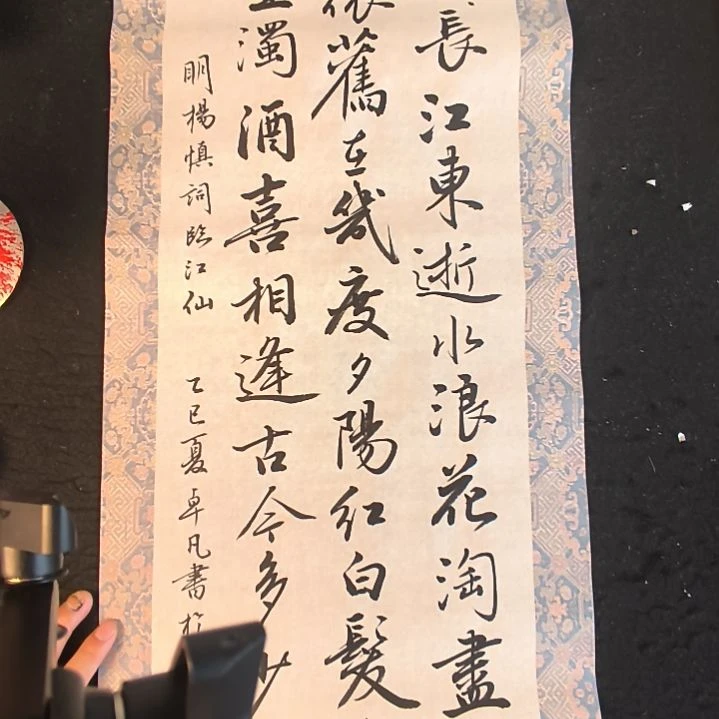 長江東逝水浪花淘盡
依舊在幾度夕陽紅白髮
濁酒喜相逢古今多少
明楊慎詞臨江仙 乙巳夏卓凡書於